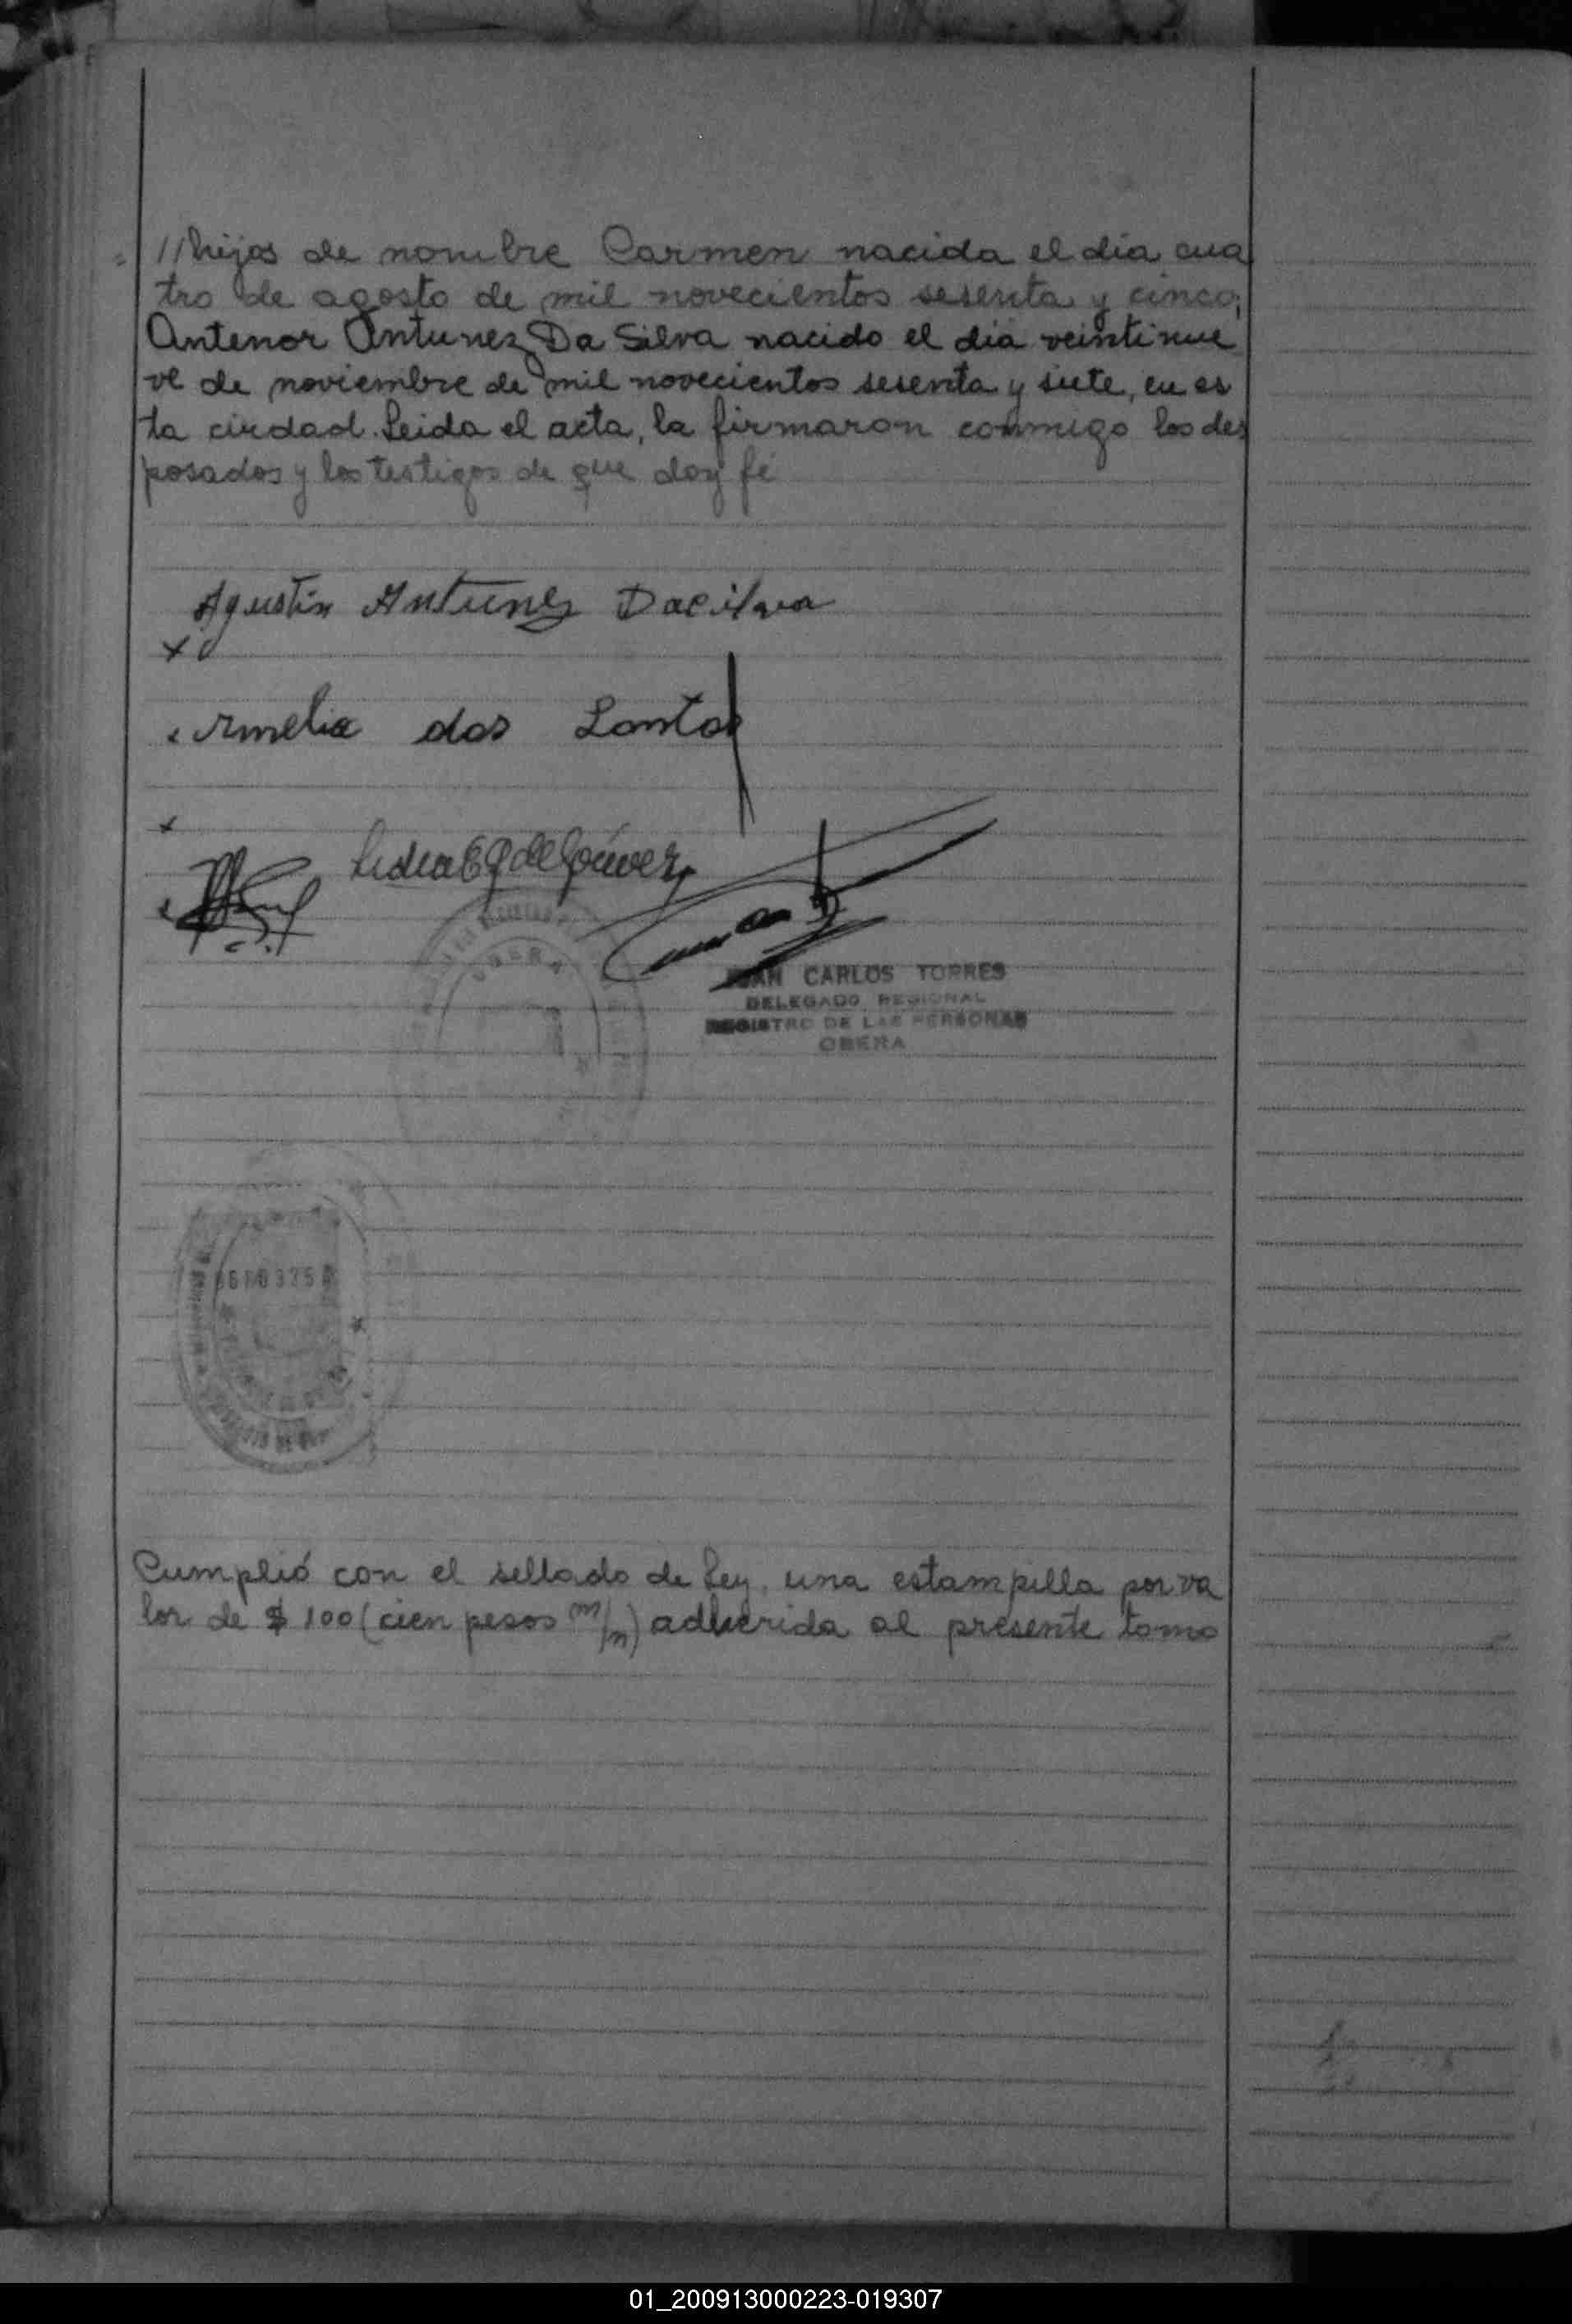 //hijos de nombre Carmen nacida el día cua
tro de agosto de mil novecientos sesenta y cinco;
Antenor Antunez Da Silva nacido el día veintinue
ve de noviembre de mil novecientos sesenta y siete, en es
ta ciudad. Leida el acta, la firmaron conmigo los des
posados y los testigos de que doy fé
Agustin Antunez Dacilva
x
Amelia dos Santos
x
JUAN CARLOS TORRES
DELEGADO REGIONAL
REGISTRO DE LAS PERSONAS
OBERA
OBERA
Cumplió con el sellado de Ley, una estampilla por va
lor de $ 100 (cien pesos m/n) adherida al presente tomo
01_200913000223-019307